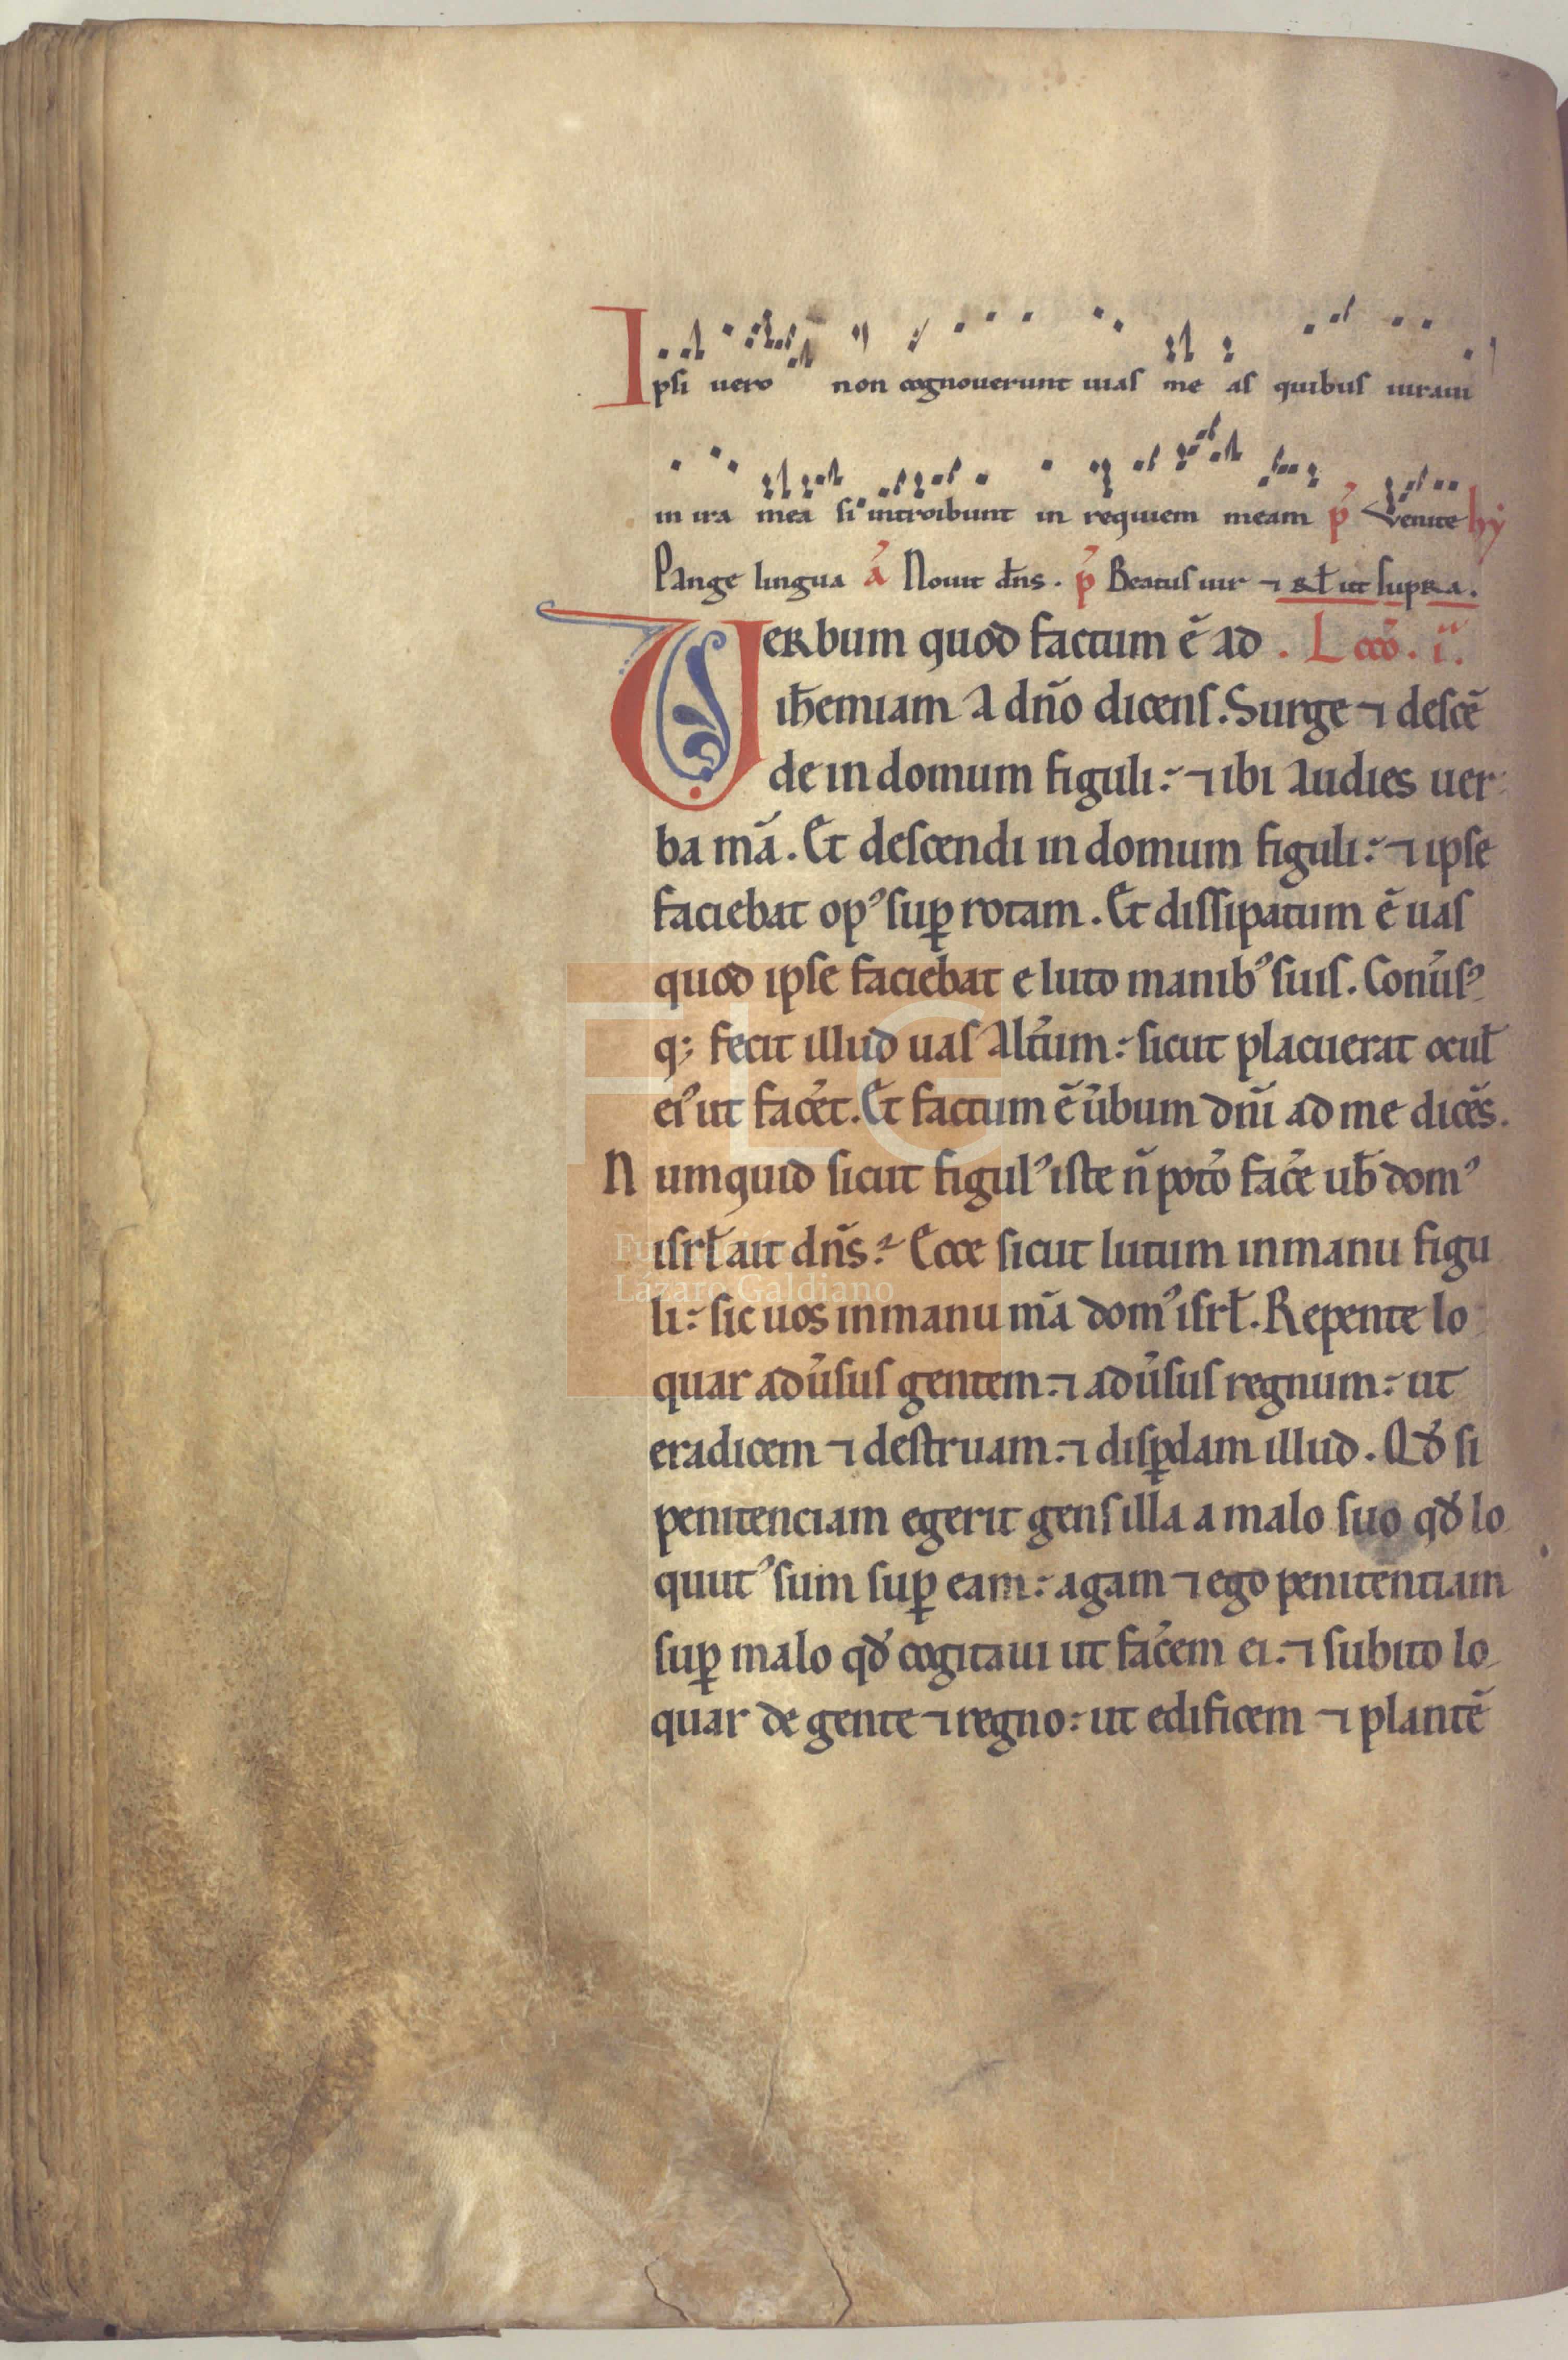 Ipsi uero non cognouerunt uias me as quibus iuraui
in ira mea si introibunt in requiem meam p̄ Venite hȳ
Pange lingua ā Nouit dn̄s. p̄ Beatus uir ⁊ ℟ ut supra.
Verbum quod factum ē ad . Lcc̄o. i.
ih̄emiam a dn̄o dicens. Surge ⁊ descē
de in domum figuli: ⁊ ibi audies uer
ba mā. Et descendi in domum figuli: ⁊ ipse
faciebat opꝰ suꝑ rotam. Et dissipatum ē uas
quod ipse faciebat e luto manibꝰ suis. Conūsꝰ
q; fecit illud uas alt̄um: sicut placuerat ocul̄
eiꝰ ut fac̄et. Et factum ē ūbum dn̄i ad me dicēs.
Numquid sicut figulꝰ iste n̄ pot̄o fac̄e ub̄ domꝰ
isrl̄ ait dn̄s? Ecce sicut lutum in manu figu
li: sic uos in manu mā domꝰ isrl̄. Repente lo
quar adūsus gentem: ⁊ adūsus regnum: ut
eradicem ⁊ destruam: ⁊ disꝑdam illud. Qđ si
penitenciam egerit gens illa a malo suo qđ lo
quutꝰ sum suꝑ eam: agam ⁊ ego penitentiam
suꝑ malo qđ cogitaui ut fac̄em ei: ⁊ subito lo
quar de gente ⁊ regno: ut edificem ⁊ plantē
FLG
Lázaro Galdiano